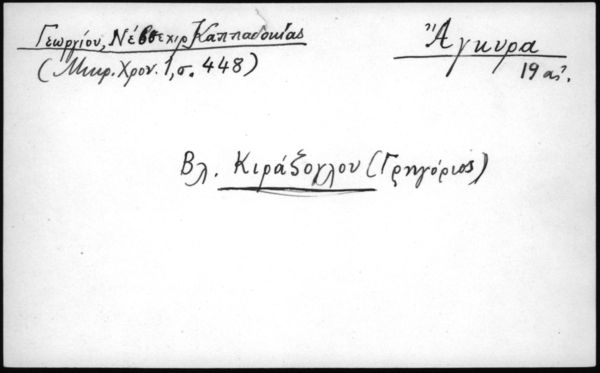 Γεωργίου, Νέβσεχιρ Καππαδοκίας
(Μικρ. Χρον. 1, σ. 448)
Ἄγκυρα
19 αἰ.
Βλ. Κιράζογλου (Γρηγόριος)